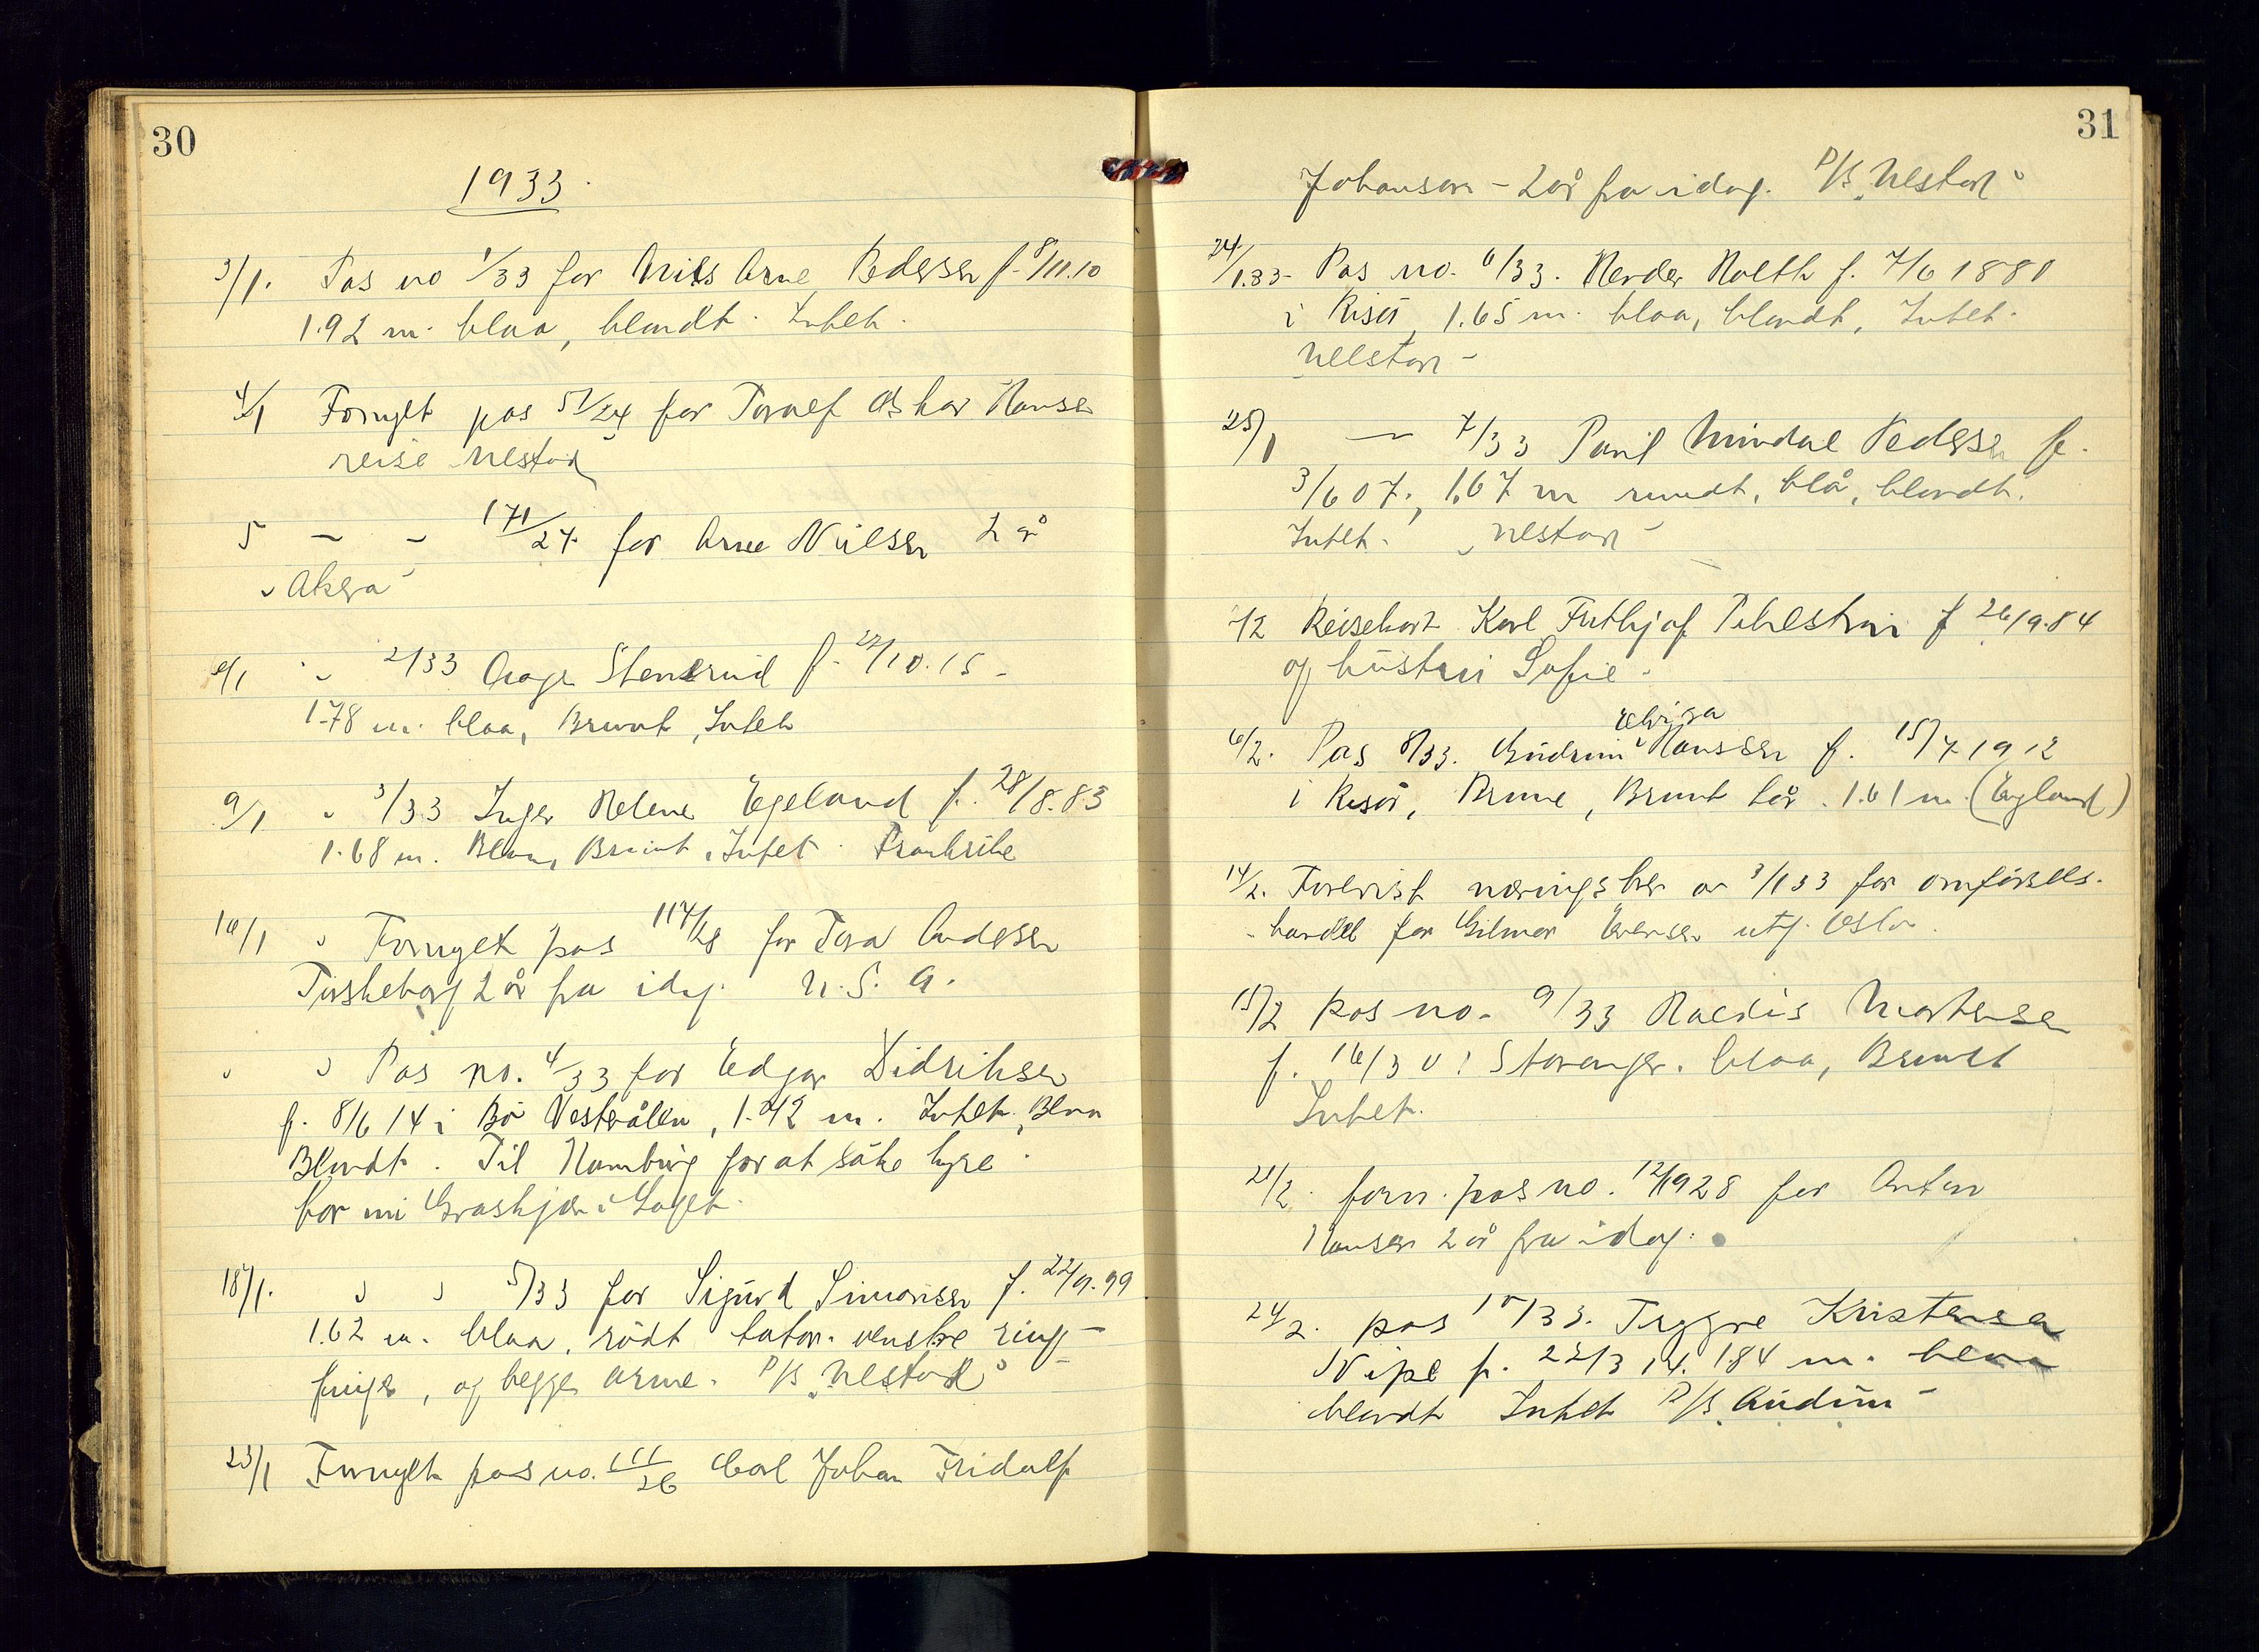 30
1933.
3/1. Pas no 1/33 for Nils Arne Pedersen f. 8/11.10
1.92 m. blaa, blondt. Intet.
4/1 Fornyet pas 51/24 for Torleif Oskar Hansen
reise Nestor
5 — — 171/27 for Arne Nilsen 2 år
"Akera"
6/1 " 2/33 Aage Stensrud f. 22/10.15 -
1.78 m. blaa, Brunt, Intet
9/1 " 3/33 Inger Helene Egeland f. 28/8.83
1.68 m. Blaa, Brunt, Intet. Frankrike
16/1 " Fornyet pas 114/28 for Tora Andersen
Torskeberg 2 år fra idag. U.S.A.
" " Pas no. 4/33 for Edgar Didriksen
f. 8/6 14 i Bö Vesterålen, 1.72 m. Intet, Blaa
Blondt. Til Hamburg for at söke hyre.
bor
18/1. " " 5/33 for Sigurd Simonsen f. 22/9.99
1.62 m. blaa, rödt tator. venstre ring-
finger, og begge arme. P/S "Nestor"
23/1 Fornyet pas no. 111/26 Carl Johan Fridolf
31
Johansen - 2 år fra idag. P/S "Nestor"
24/1.33- Pas no. 6/33. Herder Holth f. 7/6 1880
i Risör, 1.65 m. blaa, blondt, Intet.
"Nestor"
25/1 — 7/33 Poul Mindal Pedersen f.
3/6 07, 1,67 m rundt, blå, blondt.
Intet. "Nestor"
1/2 Reisekort Karl Frithjof f 26/9.84
og hustru Sofie.
6/2. Pas 8/33. Gudrun Elvira Hansen f. 15/7 1912
i Risör, Brune, Brunt hår. 1.61 m. (England)
14/2. Forevist næringsbrev av 3/1 33 for omförsels-
handel for Hilmar Evensen utf. Oslo.
15/2 pas no. 9/33 Haldis Mortensen
f. 16/3 01 Stavanger. blaa, Brunt
Intet.
21/2. forn. pas no. 12/1928 for Anton
Hansen 2 år fra idag.
24/2. pas 10/33. Tryggve Kristensen
Nipe f. 22/3 14. 184 m. blaa
blondt Intet P/S "Audun"